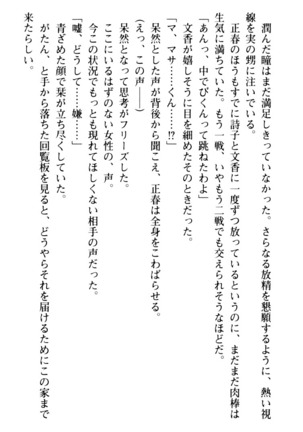 潤んだ瞳はまだ満足しきっていなかった。さらなる放精を懇願するように、熱い視
線を実の甥に注いでいる。
正春のほうもすでに詩子と文香に一度ずつ放っているというのに、まだまだ肉棒は
生気に満ちていた。もう一戦、いやもう二戦でも交えられそうなほどだ。
「あんっ、中でびくんって跳ねたわよ」
文香が嬉しそうに目を細めたそのときだった。
「マ、マサ……くん……!?」
呆然とした声が背後から聞こえ、正春は全身をこわばらせる。
（えっ、この声――）
呆然となって思考がフリーズした。
ここにいるはずのない女性の、声。
今この状況でもっとも現れてほしくない相手の声だった。
「嘘、どうして……嫌……」
青ざめた顔で栞が立ち尽くしていた。
がたん、と手から落ちた回覧板を見ると、どうやらそれを届けるためにこの家まで
来たらしい。